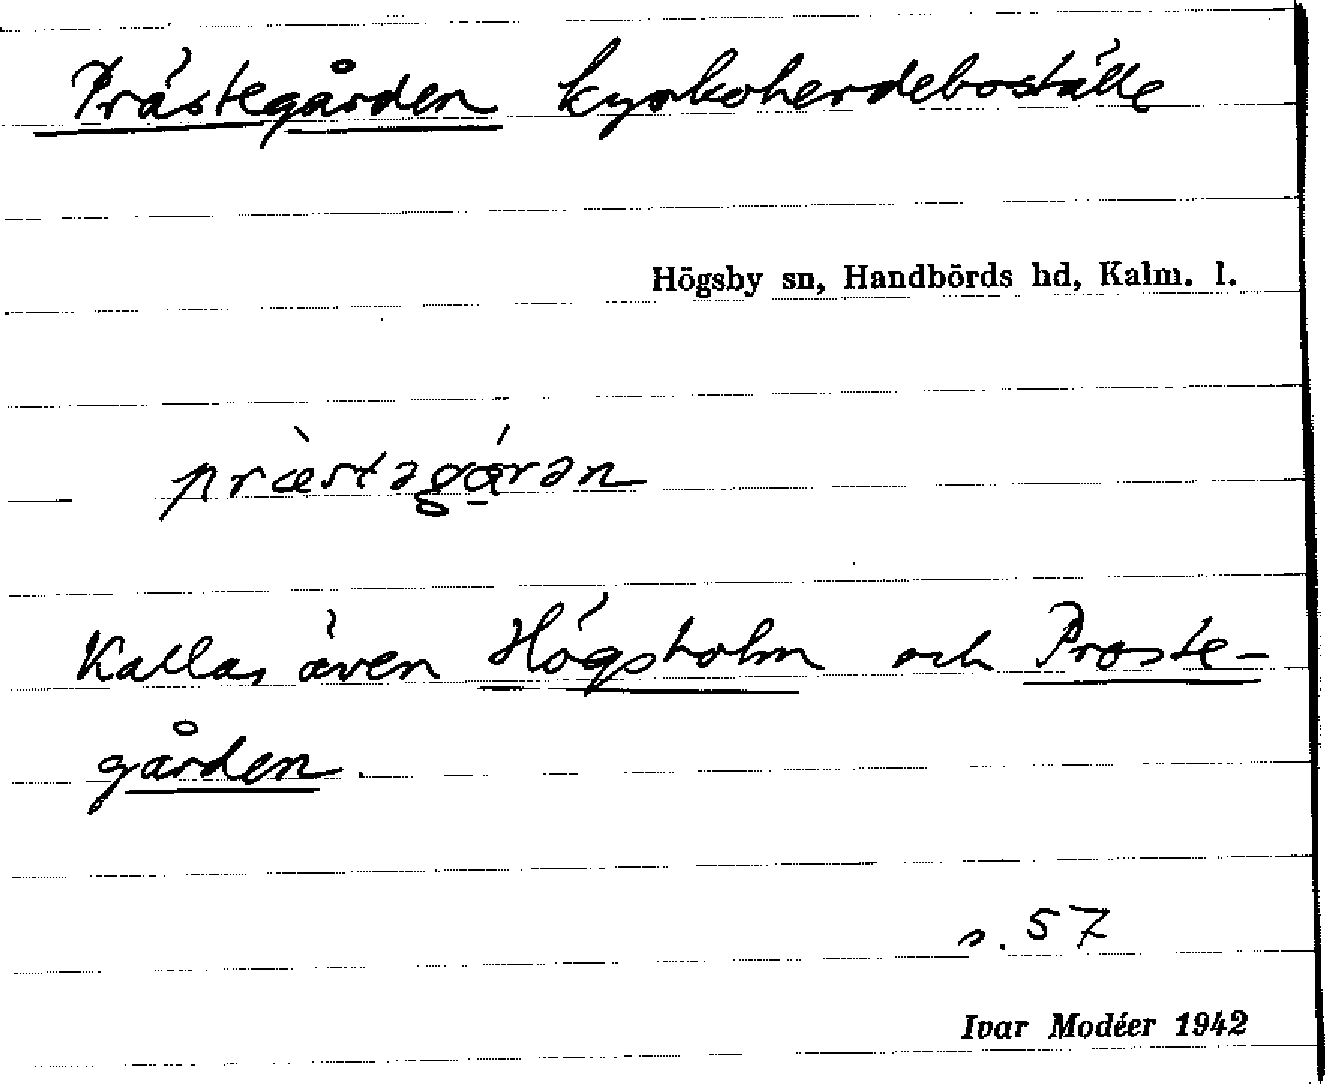 Prästegården kyrkoherdeboställe
Högsby sn, Handbörds hd, Kalm. l.
præ̀stəgá̱rən
Kallas även Högsholm och Proste-
gården.
s. 57
Ivar Modéer 1942